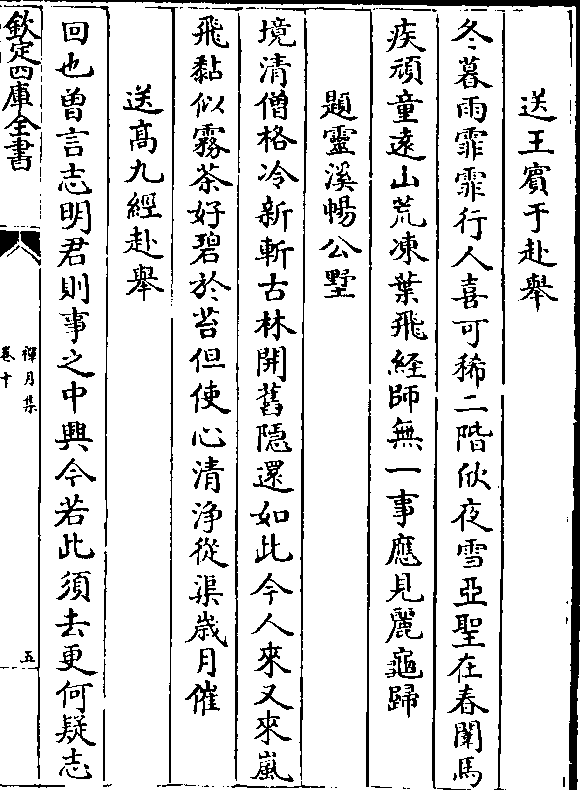 送王賓于赴舉
冬暮雨霏霏行人喜可稀二階欣夜雪亞聖在春闈馬
疾頑童遠山荒凍葉飛經師無一事應見麗龜歸
題靈溪暢公墅
境清僧格冷新斬古林開舊隱還如此今人來又來嵐
飛黏似霧茶好碧於苔但使心清淨從渠歲月催
送高九經赴舉
回也曾言志明君則事之中興今若此須去更何疑志
欽定四庫全書
禪月集
卷十
五